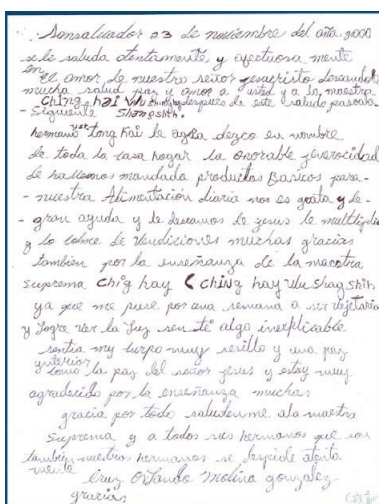 Sansalvador 23 de noviembre del año 2000
se le saluda atentamente y afectuosa mente
en
el amor de nuestro señor jesucristo deseandole
mucha salud paz y amor a usted y a la maestra
Ching hai Wu despues de este saludo pasoala
- Siguiente Shangshih.
hermano tong hai le agradezco en nombre
de toda la casa hogar la onorable generocidad
de habernos mandado productos Basicos para-
- nuestra Alimentación diaria nos es grata y de-
- gran ayuda y le deseamos de jesus le multiplique
y lo colme de Vendiciones muchas gracias
tambien por la enseñanza de la maestra
suprema Ching hay (Ching hay Wu Shag Shih
ya que me puse por una semana a ser vejetariano
y logre ver la luz sen te algo inexplicable
sentia my curpo muy sencillo y una paz
ynterior
como la paz del señor jesus y estoy muy
agradecido por la enseñanza muchas
gracia por todo saludenme ala maestra
Suprema y a todos sus hermanos que son
tambien nuestros hermanos se despide atenta
mente
Cruz Orlando Molina gonzalez
gracias